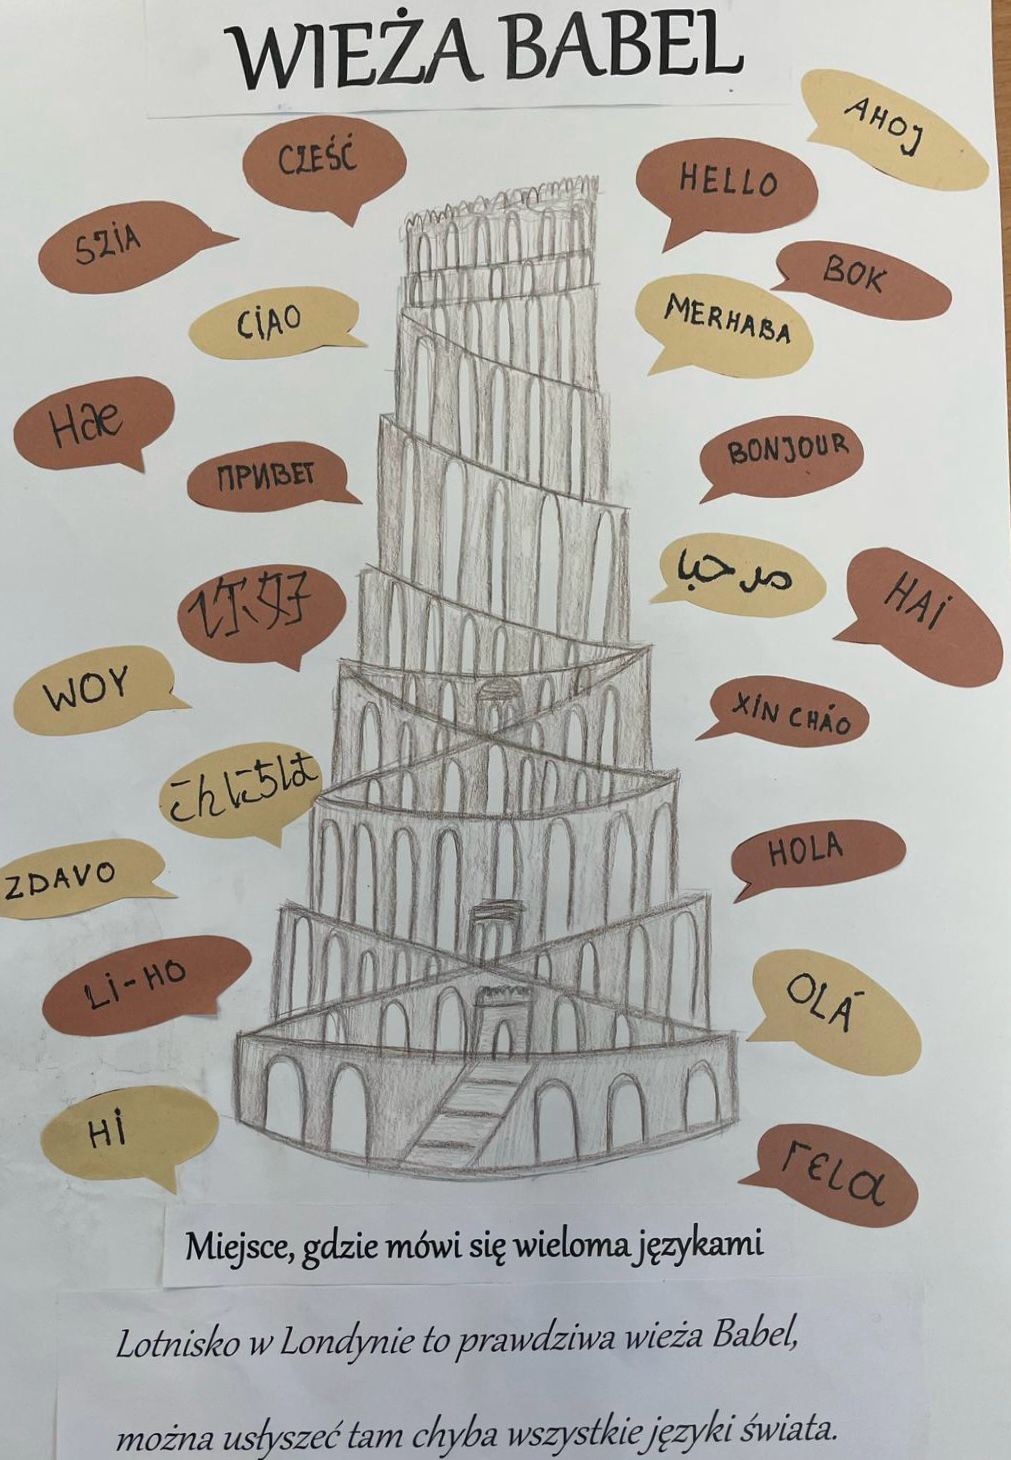 WIEŻA BABEL
AHOJ
CZEŚĆ
HELLO
SZIA
BOK
CIAO
MERHABA
Hae
BONJOUR
ПРИВЕТ
مرحبا
你好
HAI
WOY
XIN CHÁO
ZDAVO
HOLA
LI-HO
OLÁ
HI
ΓΕLα
Miejsce, gdzie mówi się wieloma językami
Lotnisko w Londynie to prawdziwa wieża Babel,
można usłyszeć tam chyba wszystkie języki świata.